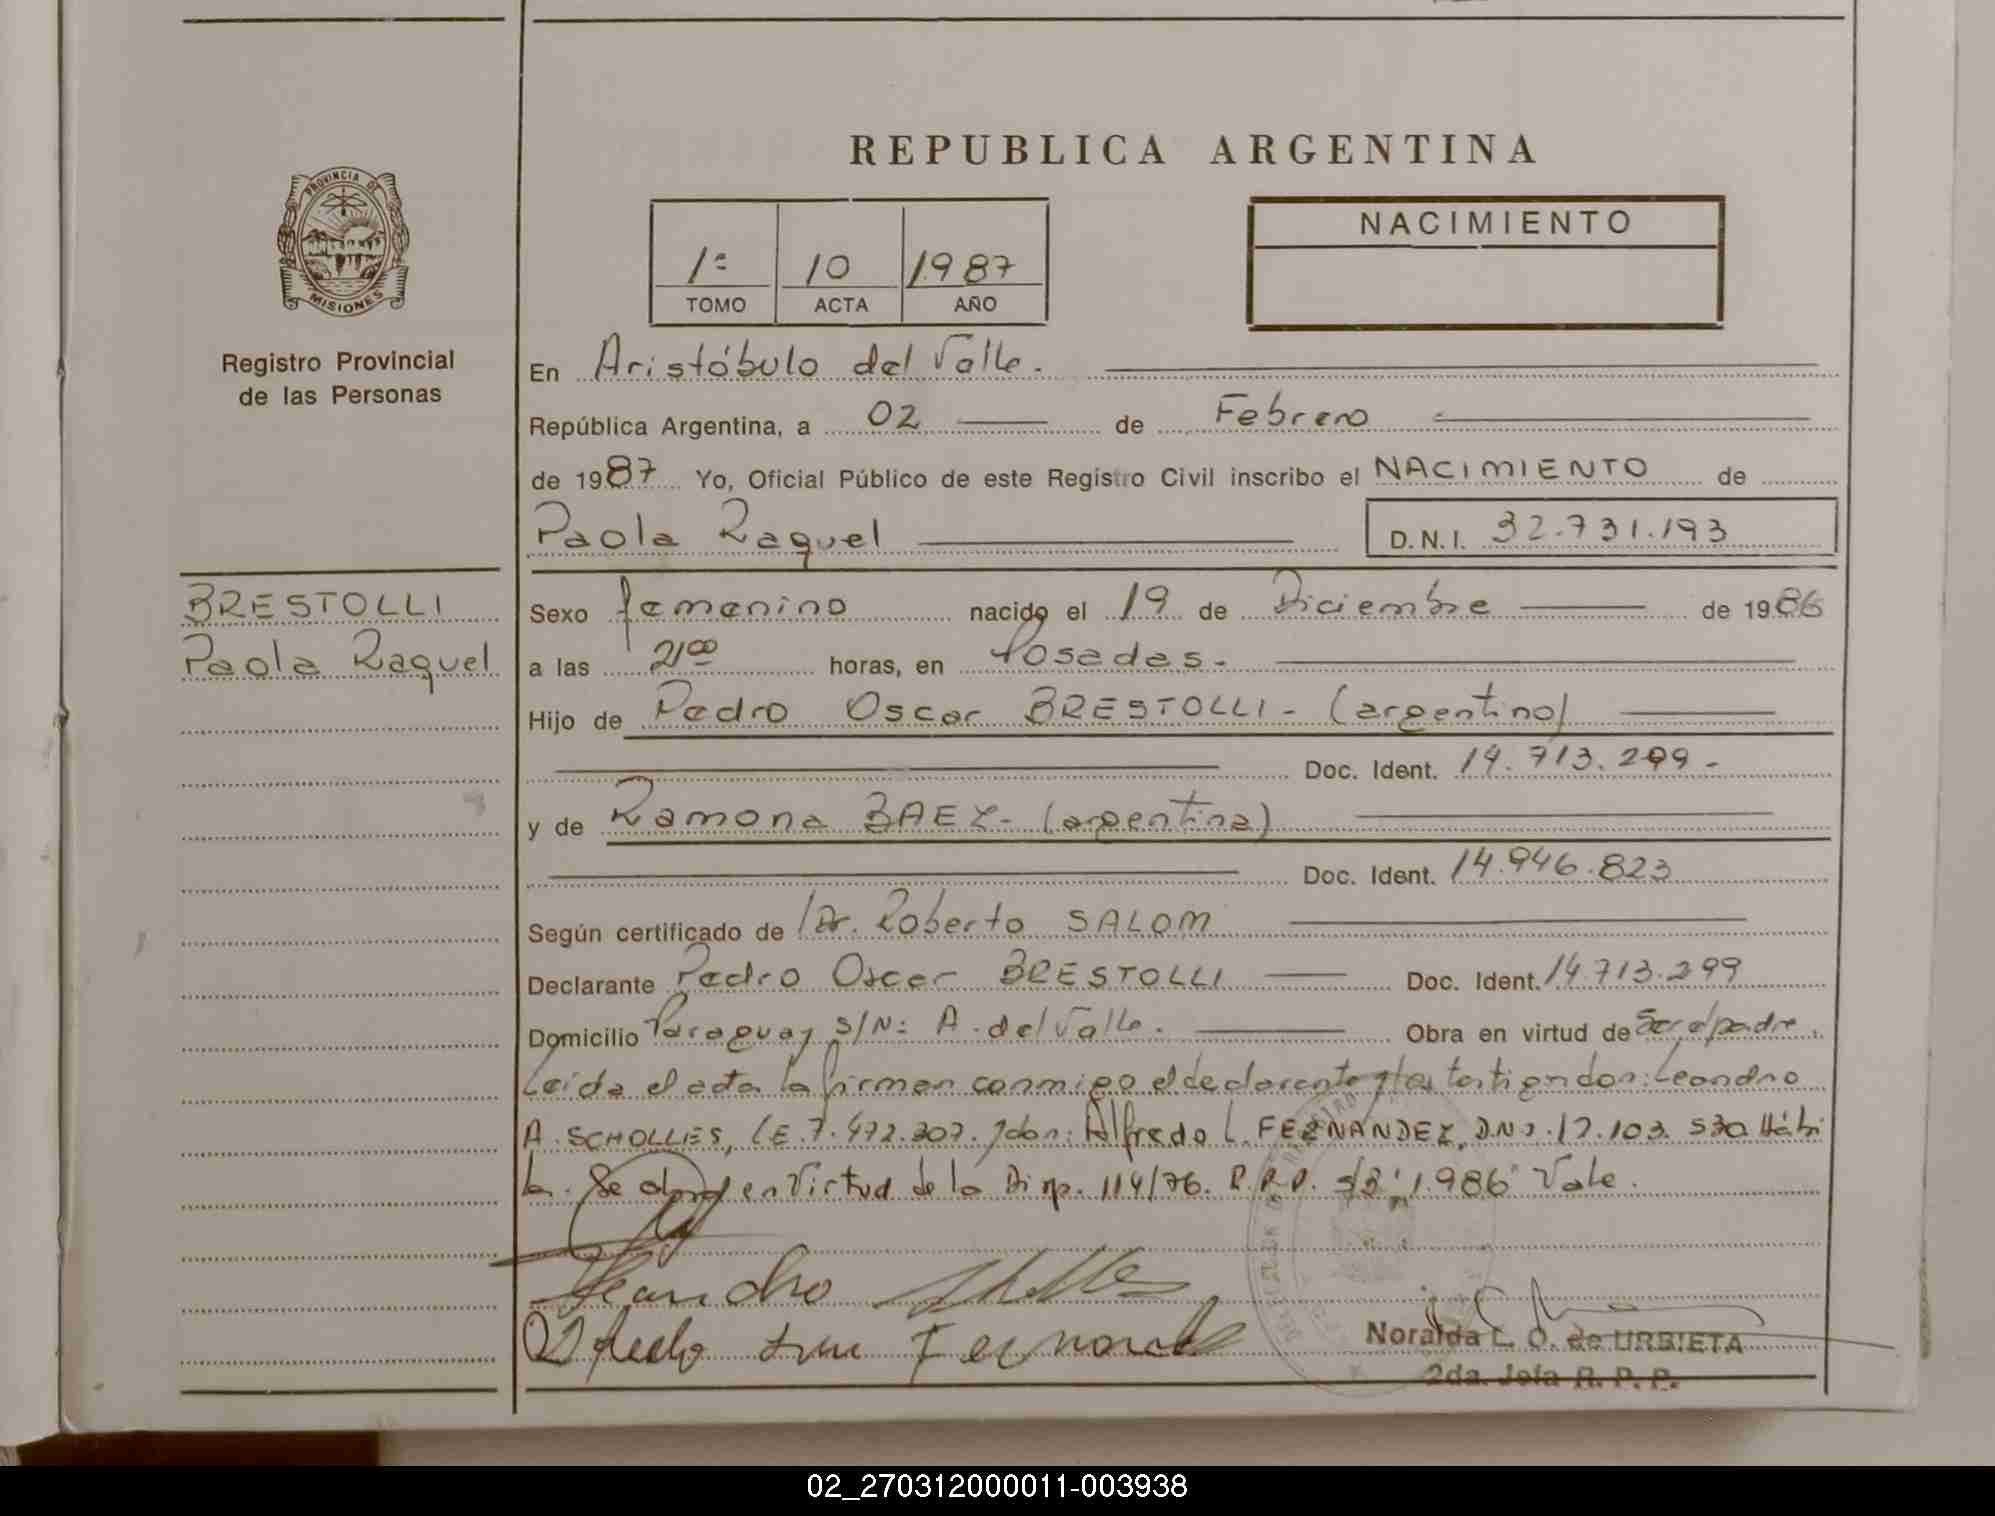 REPUBLICA ARGENTINA
PROVINCIA DE
MISIONES
Registro Provincial
de las Personas
1º 10 1987
TOMO ACTA AÑO
NACIMIENTO
En Aristóbulo del Valle.
República Argentina, a 02 de Febrero
de 1987 Yo, Oficial Público de este Registro Civil inscribo el NACIMIENTO de
Paola Raquel D.N.I. 32.731.193
BRESTOLLI
Paola Raquel
Sexo femenino nacido el 19 de Diciembre de 1986
a las 21 00 horas, en Posadas.
Hijo de Pedro Oscar BRESTOLLI - (argentino)
Doc. Ident. 14.713.299.-
y de Ramona BAEZ - (argentina)
Doc. Ident. 14.946.823
Según certificado de Dr. Roberto SALOM
Declarante Pedro Oscar BRESTOLLI Doc. Ident. 14.713.299
Domicilio Paraguay S/Nº A. del Valle. Obra en virtud de Ser el padre.
Leída el acta la firman conmigo el declarante y los testigos don: Leandro
A. SCHOLLES, L.E. 7.472.307. y don: Alfredo L. FERNANDEZ, D.N.I. 17.103.530 Hábi
les. Se obró en Virtud de la Disp. 114/76. R.P.P. S/R: "1986" Vale.
Leandro
Fernandez
Noralda L. O. de URBIETA
2da. Jefa R. P. P.
02_270312000011-003938